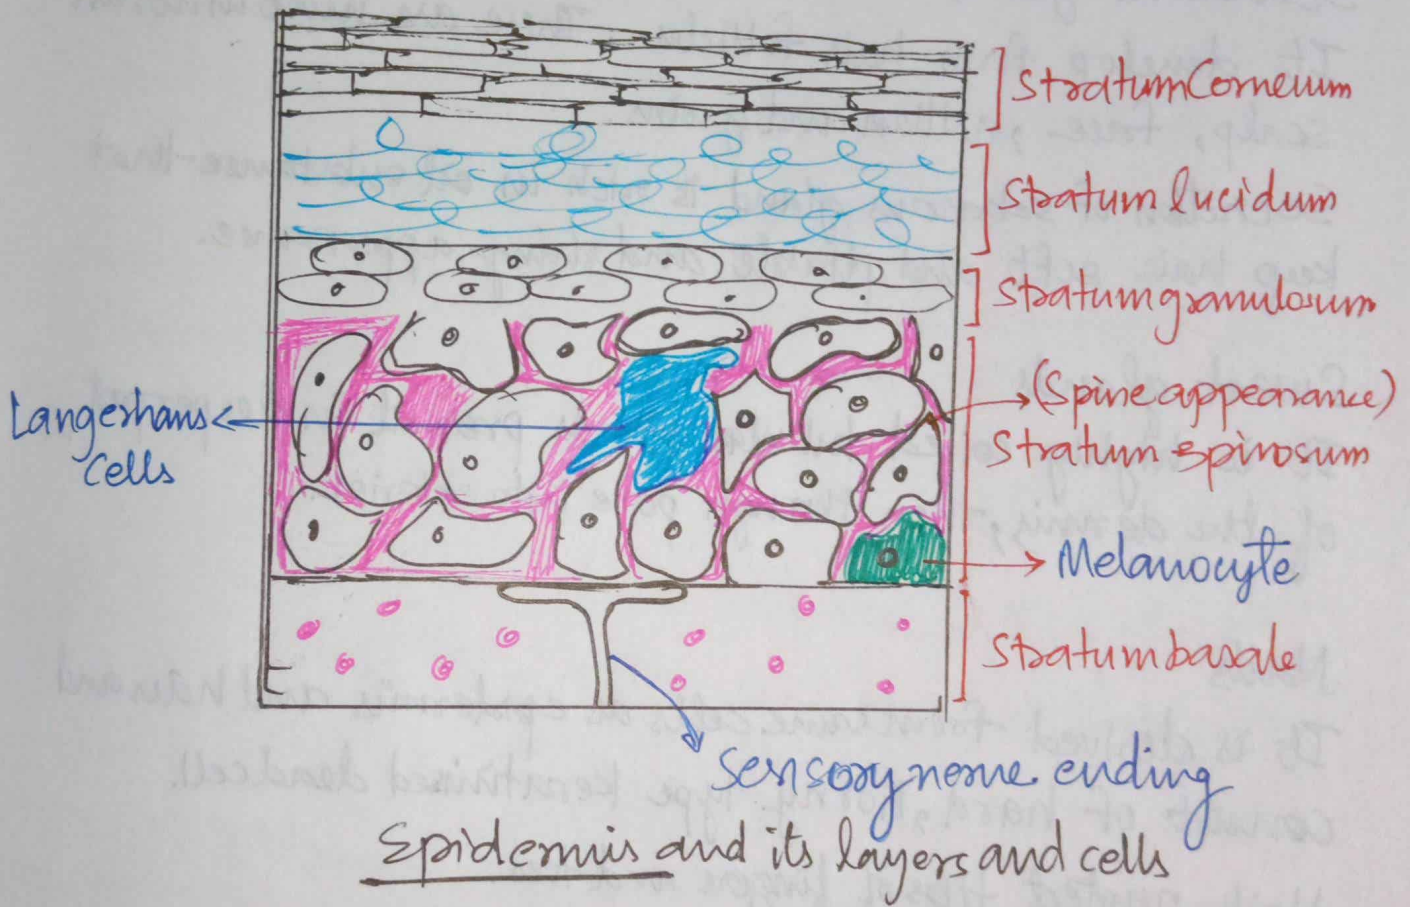 Stratum Corneum
Stratum lucidum
Stratum granulosum
(Spine appearance)
Stratum spinosum
Langerhans
Cells
Melanocyte
Stratum basale
Sensory nerve ending
Epidermis and its layers and cells